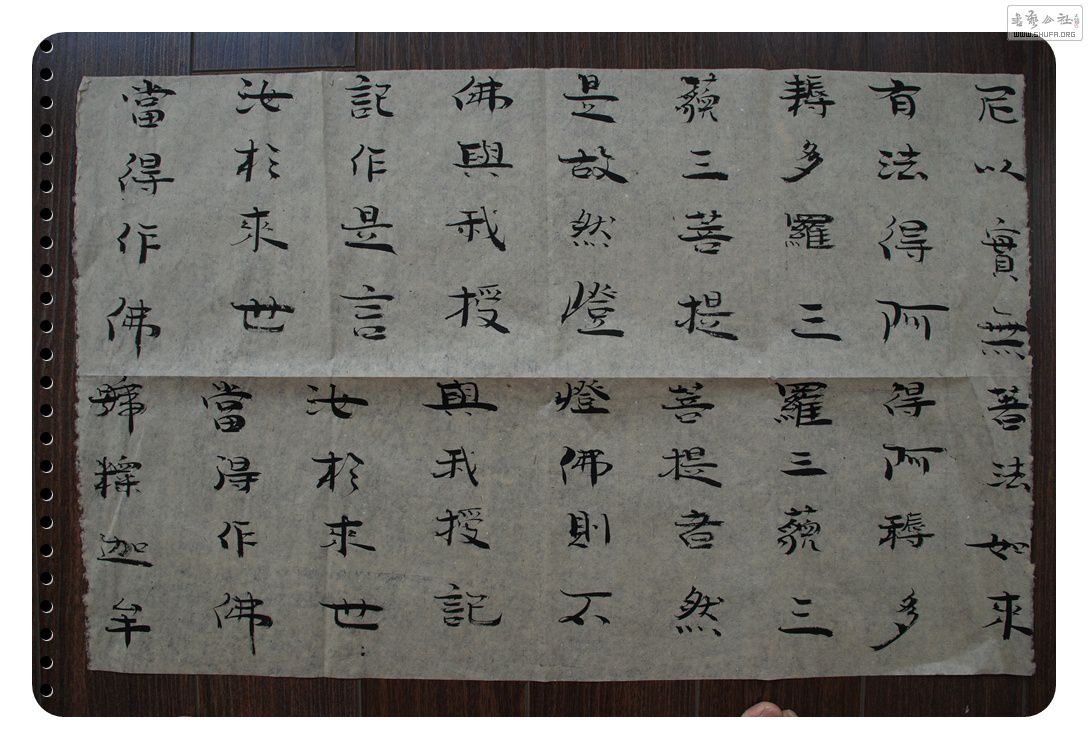 菩法如來
得阿耨多
羅三藐三
菩提者然
燈佛則不
與我授記
汝於來世
當得作佛
號釋迦牟
尼以實無
有法得阿
耨多羅三
藐三菩提
是故然燈
佛與我授
記作是言
汝於來世
當得作佛
WWW.SHUFA.ORG